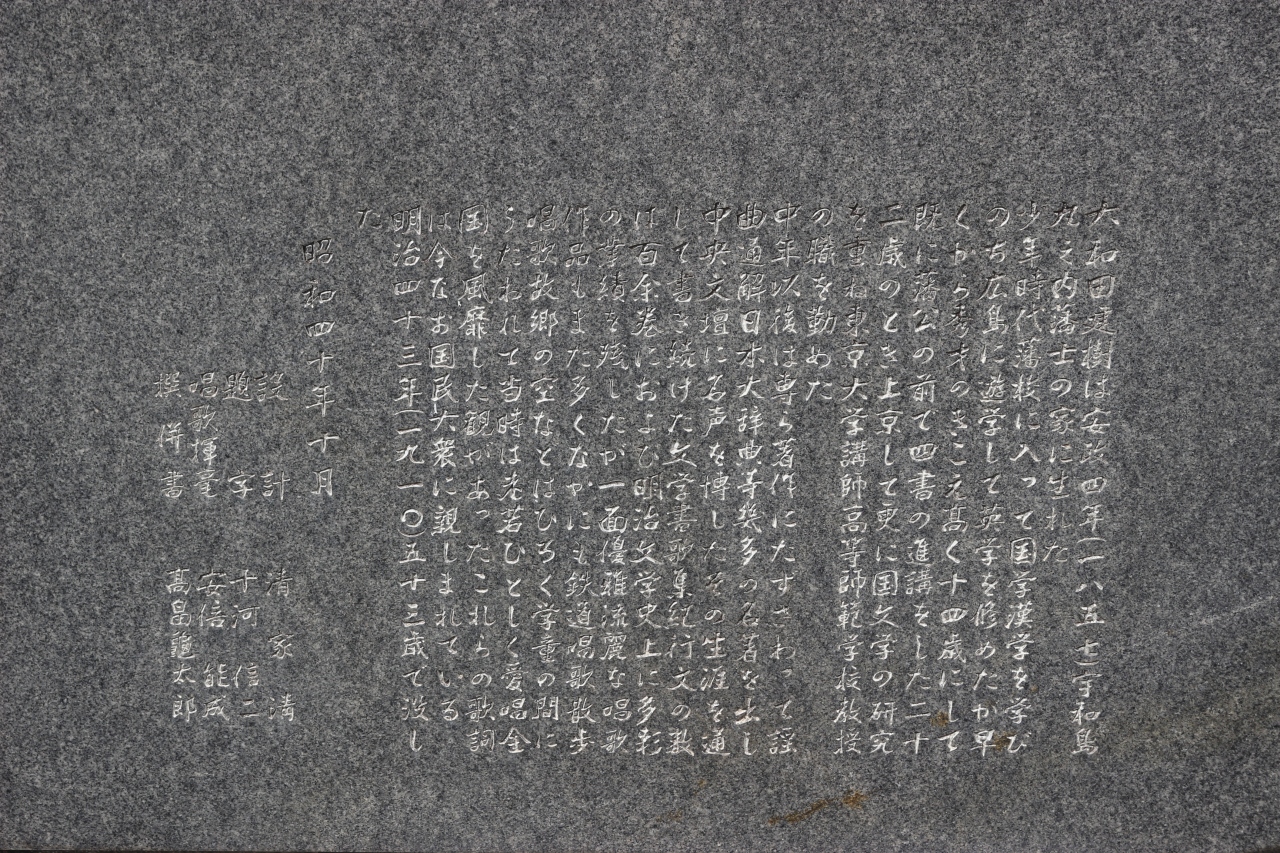 大和田建樹は安政四年(一八五七)宇和島
丸之内藩士の家に生れた
少年時代藩校に入って国学漢学を学び
のち広島に遊学して英学を修めたが早
くから秀才のきこえ高く十四歳にして
既に藩公の前で四書の進講をした二十
二歳のとき上京して更に国文学の研究
を重ね東京大学講師高等師範学校教授
の職を勤めた
中年以後は専ら著作にたずさわって謡
曲通解日本大辞典等幾多の名著を出し
中央文壇に名声を博したその生涯を通
して書き続けた文学書歌集紀行文の数
は百余巻におよび明治文学史上に多彩
の業績を残したが一面優雅流麗な唱歌
作品もまた多くなかにも鉄道唱歌散歩
唱歌故郷の空などはひろく学童の間に
うたわれて当時は老若ひとしく愛唱全
国を風靡した観があったこれらの歌詞
は今なお国民大衆に親しまれている
明治四十三年(一九一〇)五十三歳で没し
た
昭和四十年十月
設計 清家清
題字 十河信二
唱歌揮毫 安倍能成
撰併書 高畠亀太郎